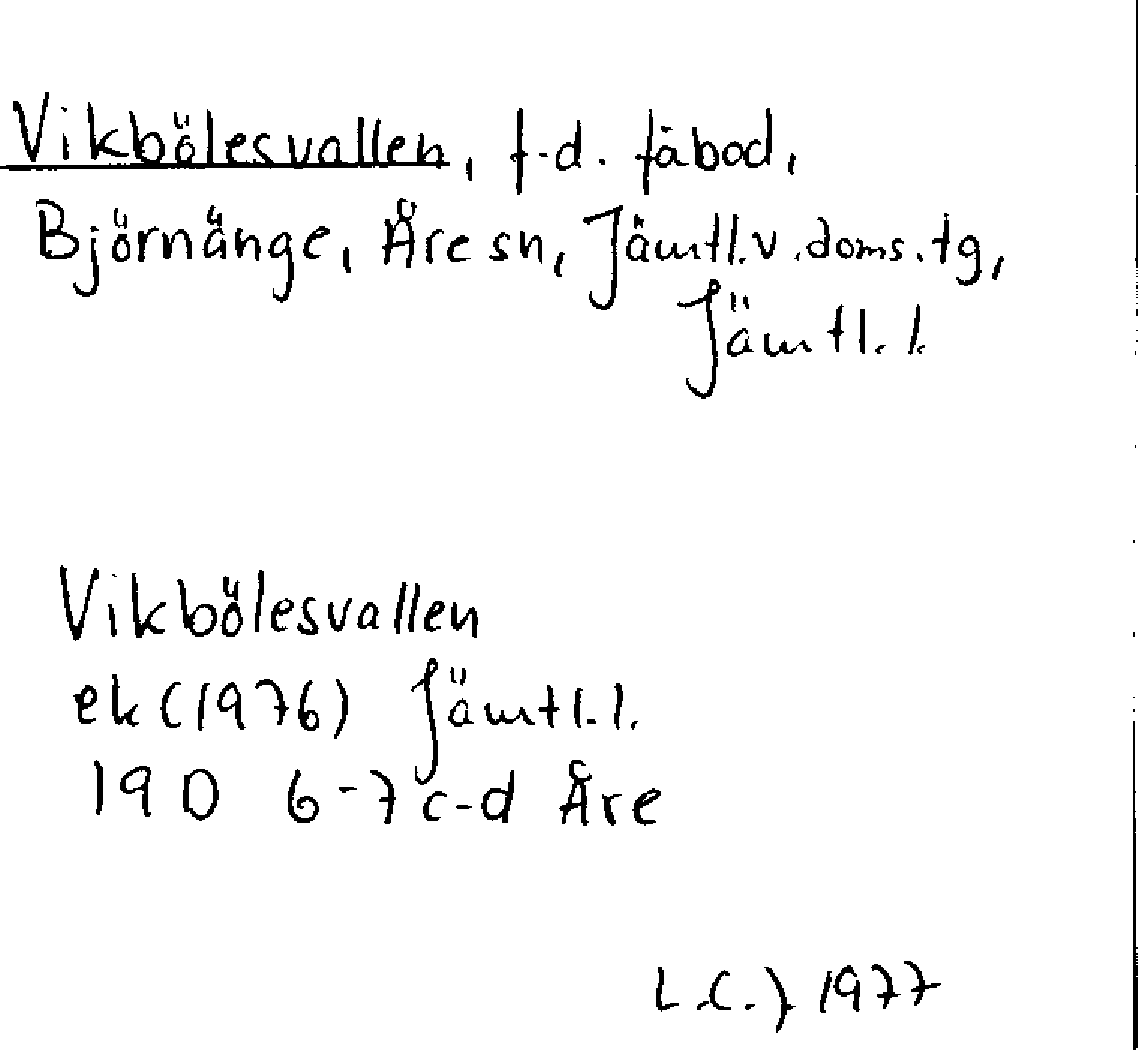 Vikbölesvallen, f.d. fäbod,
Björnänge, Åre sn, Jämtl.v.doms.tg,
Jämtl.l.
Vikbölesvallen
ek (1976) Jämtl.l.
19D 6-7c-d Åre
L.C.J 1977